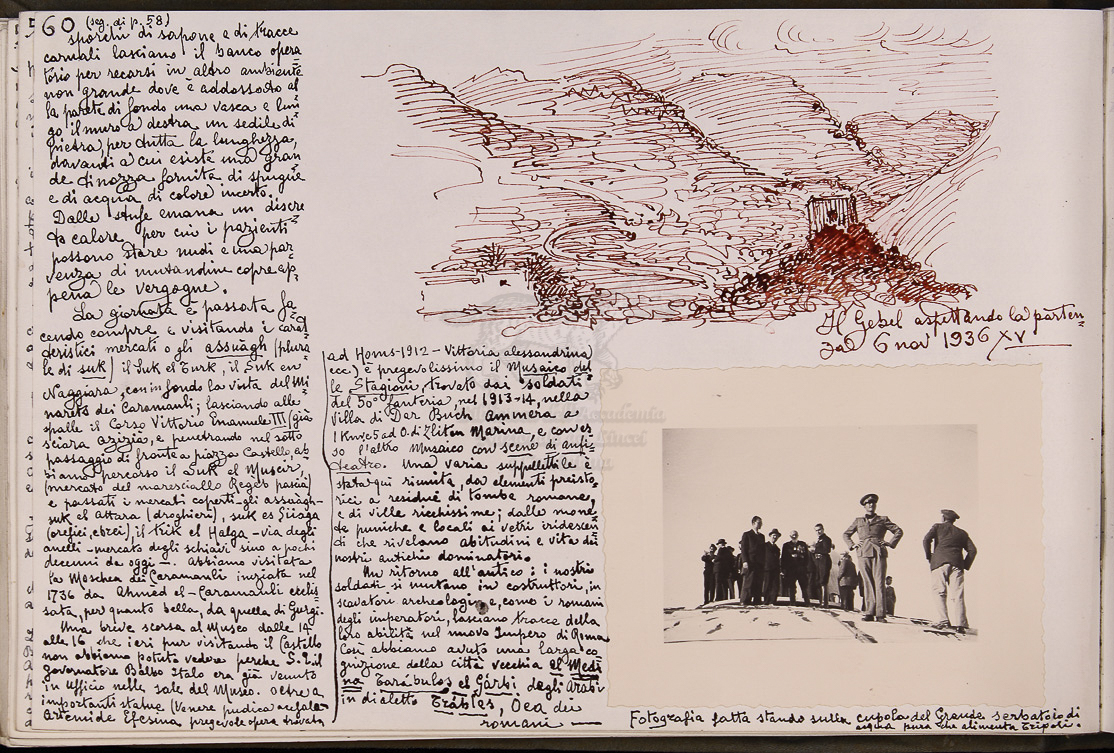 60 (seg. di p. 58)
sporchi di sapone e di tracce
carnali lasciano il banco opera=
torio per recarsi in altro ambiente
non grande dove è addossato al
la parete di fondo una vasca e lun=
go il muro a destra un sedile di
pietra, per tutta la lunghezza,
davanti a cui esiste una gran
de tinozza fornita di spugne
e di acqua di colore incerto.
Dalle stufe emana un discre
to calore per cui i pazienti
possono stare nudi e una par
venza di mutandine copre ap=
pena le vergogne.
La giornata è passata fa=
cendo compre e visitando i carat
teristici mercati o gli assuàgh (plura
le di suk) il Suk el Turk, il Suk en
Naggiara, con in fondo la vista del Mi
nareto dei Caramanli; lasciando alle
spalle il Corso Vittorio Emanuele III (già
sciara Azizia), e penetrando nel sotto
passaggio di fronte a piazza Castello, ab
biamo percorso il Suk el Muscir,
(mercato del maresciallo Regeb pascià)
e passati i mercati coperti - gli assuàgh -
suk el Attara (droghieri), suk es Siiaga
(orefici, ebrei), il trik el Halga - via degli
anelli - mercato degli schiavi sino a pochi
decenni da oggi -. Abbiamo visitata
la Moschea dei Caramanli iniziata nel
1736 da Ahmed el-Caramanli eclis
sata, per quanto bella, da quella di Gurgi.
Una breve scorsa al Museo dalle 14
alle 16 che ieri pur visitando il Castello
non abbiamo potuto vedere perchè S. E. il
governatore Balbo Italo era già venuto
in ufficio nelle sale del Museo. Oltre a
importanti statue (Venere pudica acefala
Artemide Efesina pregevole opera trovata
ad Homs - 1912 - Vittoria alessandrina
ecc) è pregevolissimo il Musaico del
le Stagioni, trovato dai soldati
del 50° fanteria, nel 1913-14, nella
villa di Dar Buch Ammera a
1 Km e 5 ad O. di Zliten Marina, e con es
so l'altro Musaico con scene di anfi=
teatro. Una varia suppellettile è
stata qui riunita, da elementi preisto=
rici a residui di tombe romane,
e di ville ricchissime; dalle mone=
te puniche e locali ai vetri iridescen
ti che rivelano abitudini e vita dei
nostri antichi dominatori.
Un ritorno all'antico: i nostri
soldati si mutano in costruttori, in
scavatori archeologi e, come i romani
degli imperatori, lasciano tracce della
loro abilità nel nuovo Impero di Roma
Così abbiamo avuto una larga co=
gnizione della città vecchia el Medi
na Tarábulos el Garbi degli Arabi
in dialetto Trábles, Oea dei
romani —
Il Gebel aspettando la parten=
za 6 nov 1936 XV
Fotografia fatta stando sulla cupola del Grande serbatoio di
acqua pura che alimenta Tripoli.